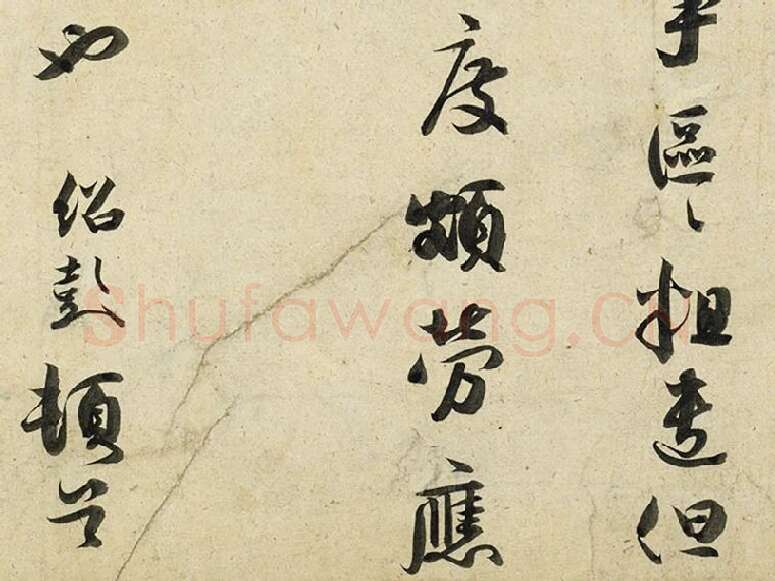 事區々粗遣但
度頗勞應
紹彭頓首
Shufawang.CN